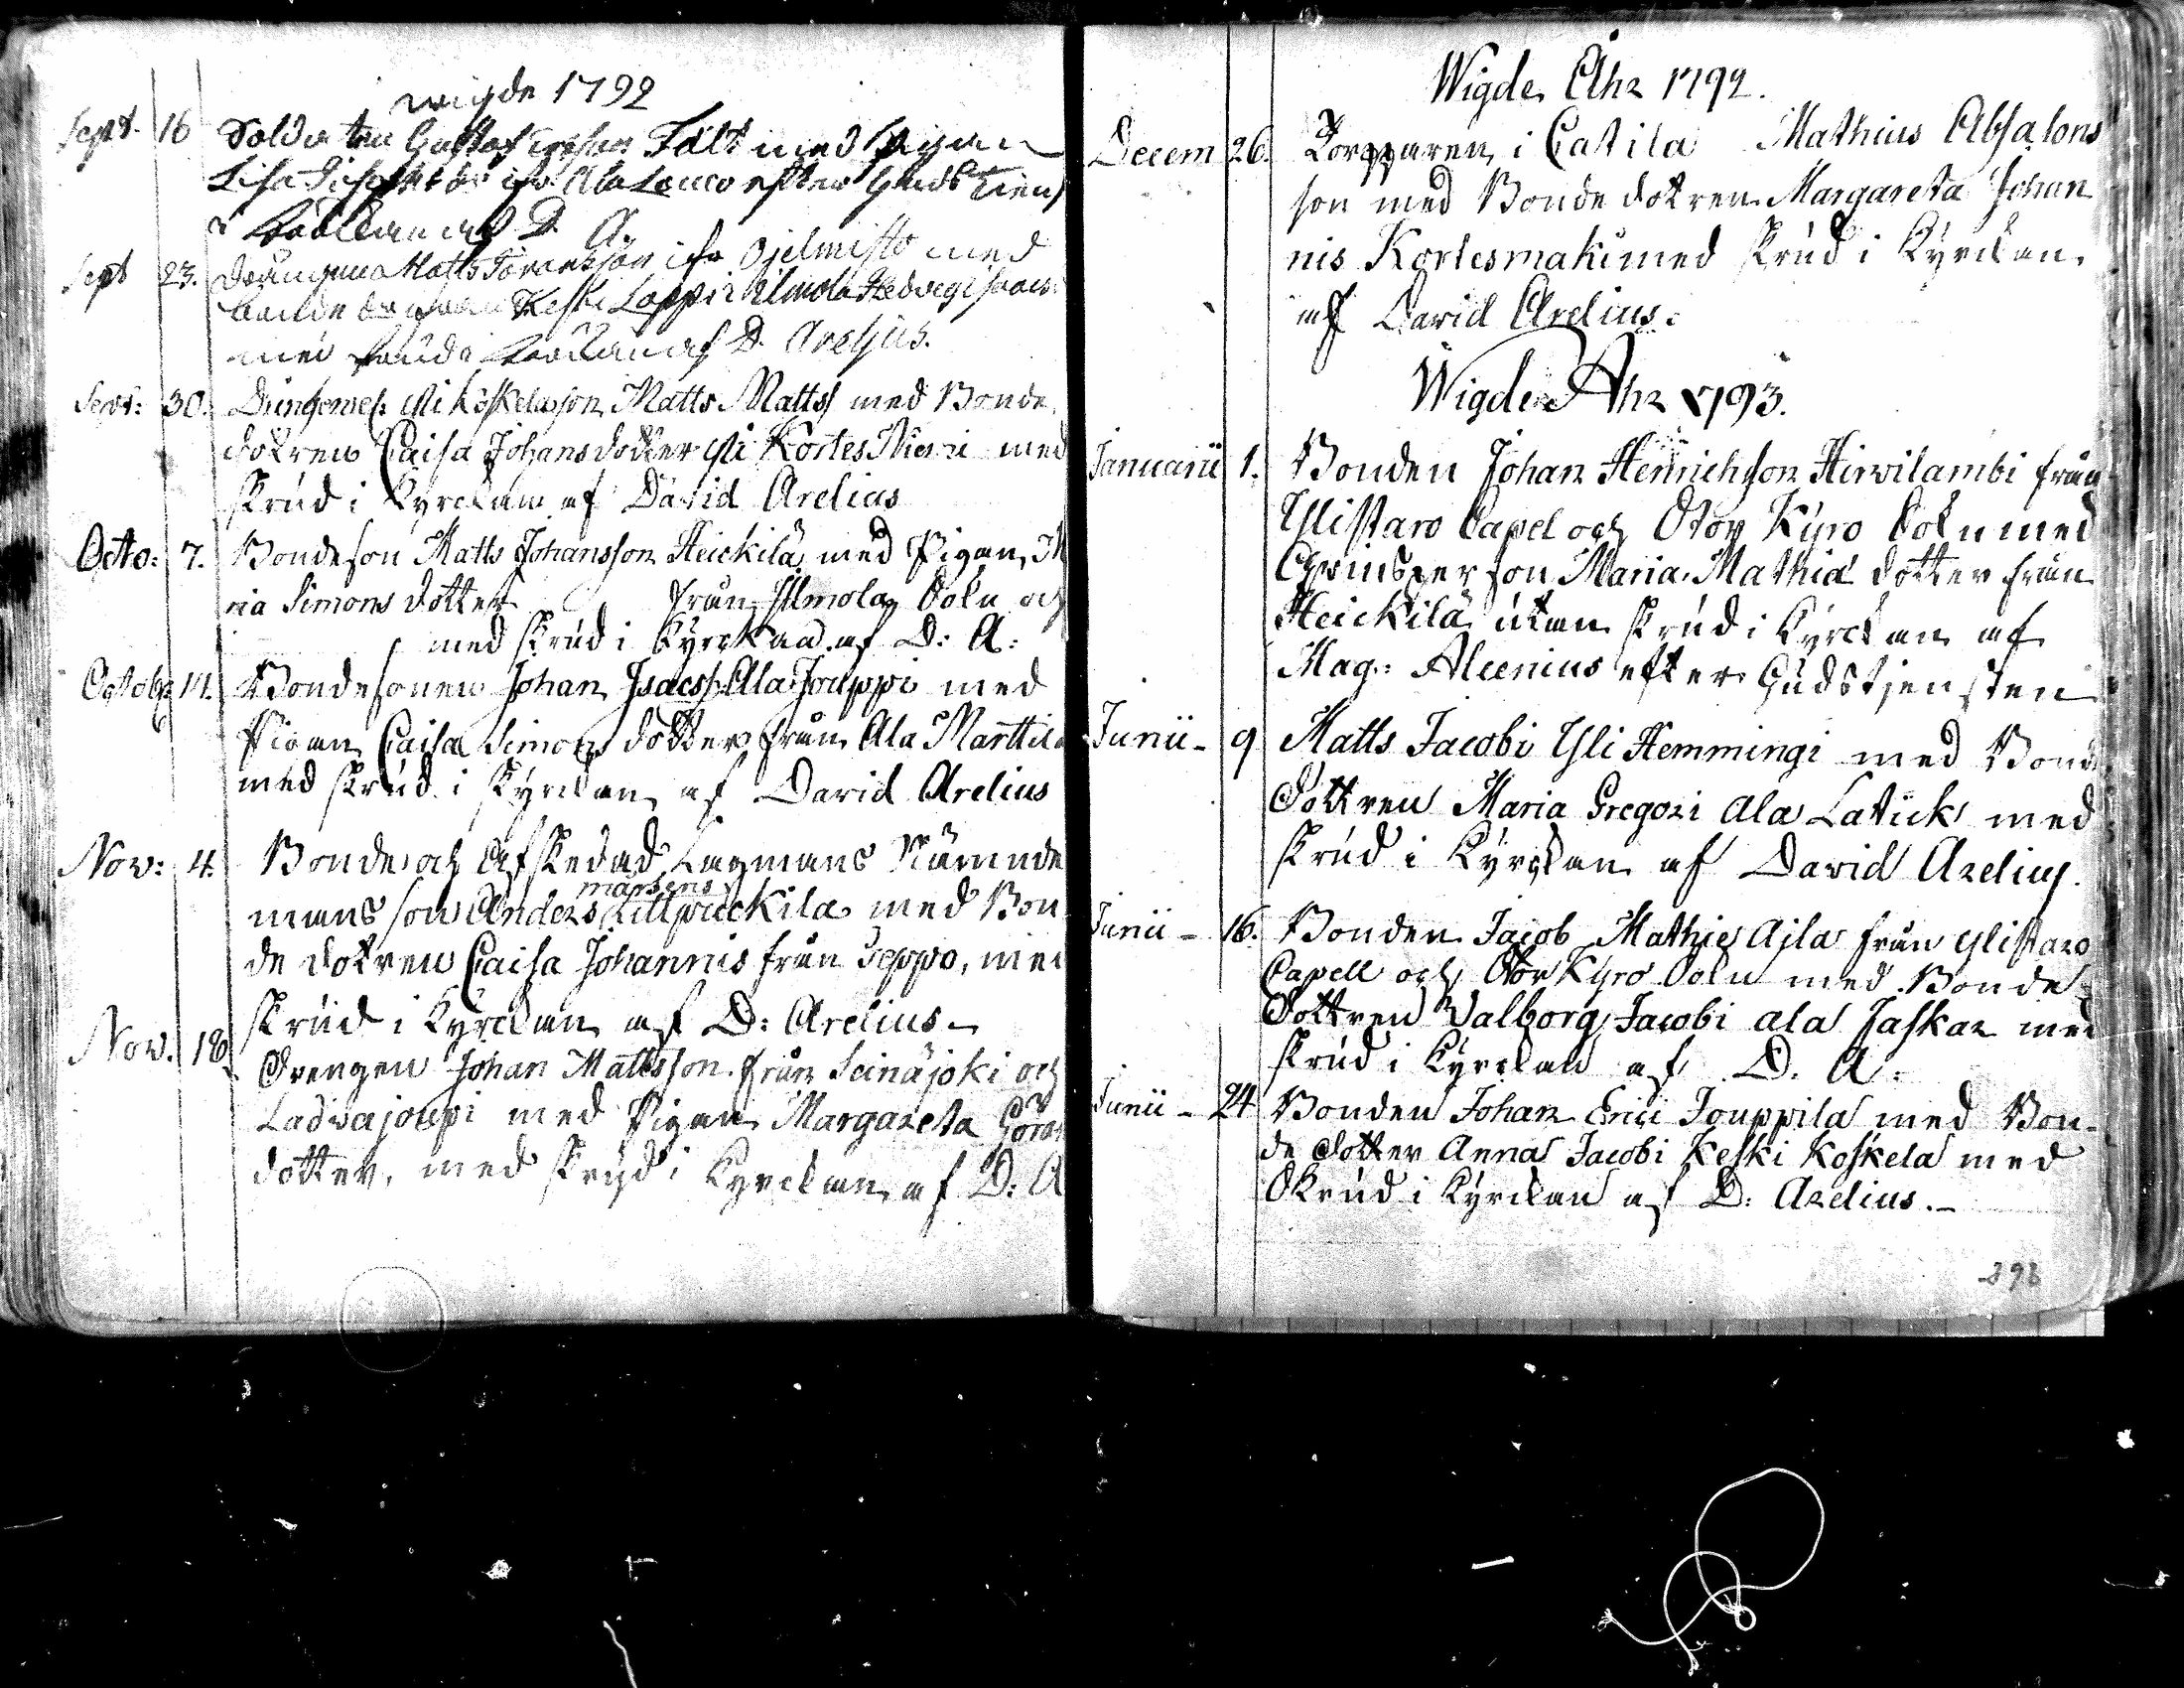 wigde 1792
Sept. 16 Soldaten Gustaf Fält med Pigan
Lisa ifr. Ala Louco efter Gudstiens
i af D. A.
Sept 23. Drängen Matts Göransson ifr. Ojelmisto med
Bonde Keski Loppi Ilmola Hedvig Isaacs
med skrud i Kyrckan af D. Arelius.
Sept: 30. Yli Koskela son Matts Matts med Bonde
dotren Caisa Johansdotter Yli Kortes Niemi med
skrud i Kyrckan af David Arelius
Octo: 7. Bondeson Matts Johansson Heickilä med Pigan, M
ria Simons dotter från Ilmola Sokn och
med skrud i Kyrckan af D: A:
Octobr 14. Bondesonen Johan Isacs: Ala Jouppi med
Pigan Caisa Simons dotter från Ala Marttila
med skrud i Kyrckan af David Arelius
Nov: 4. Bonde och Afskedad Lagmans Nämnde
mans son Anders marsens Lillpuckila med Bon
de dotren Caisa Johannis från Seppo, med
skrud i Kyrckan af D: Arelius.
Nov. 18 Drengen Johan Mattsson från Seinäjoki och
Ladvajoupi med Pigan Margareta Göra
dotter, med skrud i Kyrckan af D: A
Wigde Åhr 1792.
Decem 26. Torpparen i Catila Mathius Absalons
son med Bonde dotren Margareta Johan
nis Kortesmaki med skrud i Kyrckan
af David Arelius.
Wigde Åhr 1793.
Januarii 1. Bonden Johan Henrichson Hirvilambi från
Ylistaro Capel och Stor Kyro Sokn med
Qvinsperson Maria Mathiæ dotter från
Heickilä utan skrud i Kyrckan af
Mag: Alcenius efter Gudstjensten
Junii - 9 Matts Jacobi Yli Hemmingi med Bonde
Dottren Maria Gregori Ala Latick med
skrud i Kyrckan af David Arelius.
Junii - 16. Bonden Jacob Mathie Ajla från Ylistaro
Capell och Stor Kyro Sokn med Bonde
Dottren Valborg Jacobi ala Jaskar med
skrud i Kyrckan af D. A.
Junii - 24 Bonden Johan Erici Jouppila med Bon-
de Dotter Anna Jacobi Keski Koskela med
Skrud i Kyrckan af D: Arelius.-